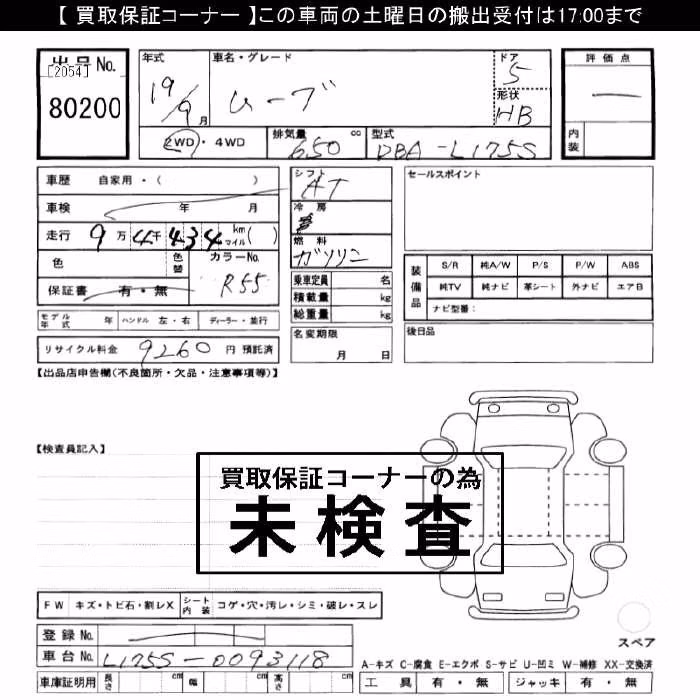 【 買取保証コーナー 】この車両の土曜日の搬出受付は17:00まで
出品No.
[2054]
80200
年式 19/9月
車名・グレード ムーブ
ドア 5
形状 HB
2WD・4WD
排気量 650 cc
型式 DBA-L175S
評価点 —
内装
車歴 自家用・( )
車検 年 月
走行 9万4千434 km マイル( )
色 色替 カラーNo. R55
保証書 有・無
シフト AT
冷房
燃料 ガソリン
乗車定員 名
積載量 kg
総重量 kg
セールスポイント
装備品
S/R 純A/W P/S P/W ABS
純TV 純ナビ 革シート 外ナビ エアB
ナビ型番:
モデル年式 年 ハンドル 左・右 ディーラー・並行
名変期限 月 日
後日品
リサイクル料金 9260 円 預託済
【出品店申告欄(不良箇所・欠品・注意事項等)】
【検査員記入】
買取保証コーナーの為
未検査
FW キズ・トビ石・割レX シート内装 コゲ・穴・汚レ・シミ・破レ・スレ
登録No.
車台No. L175S-0093118
スペア
A-キズ C-腐食 E-エクボ S-サビ U-凹ミ W-補修 XX-交換済
車庫証明用 長さ cm 幅 cm 高さ cm
工具 有・無 ジャッキ 有・無